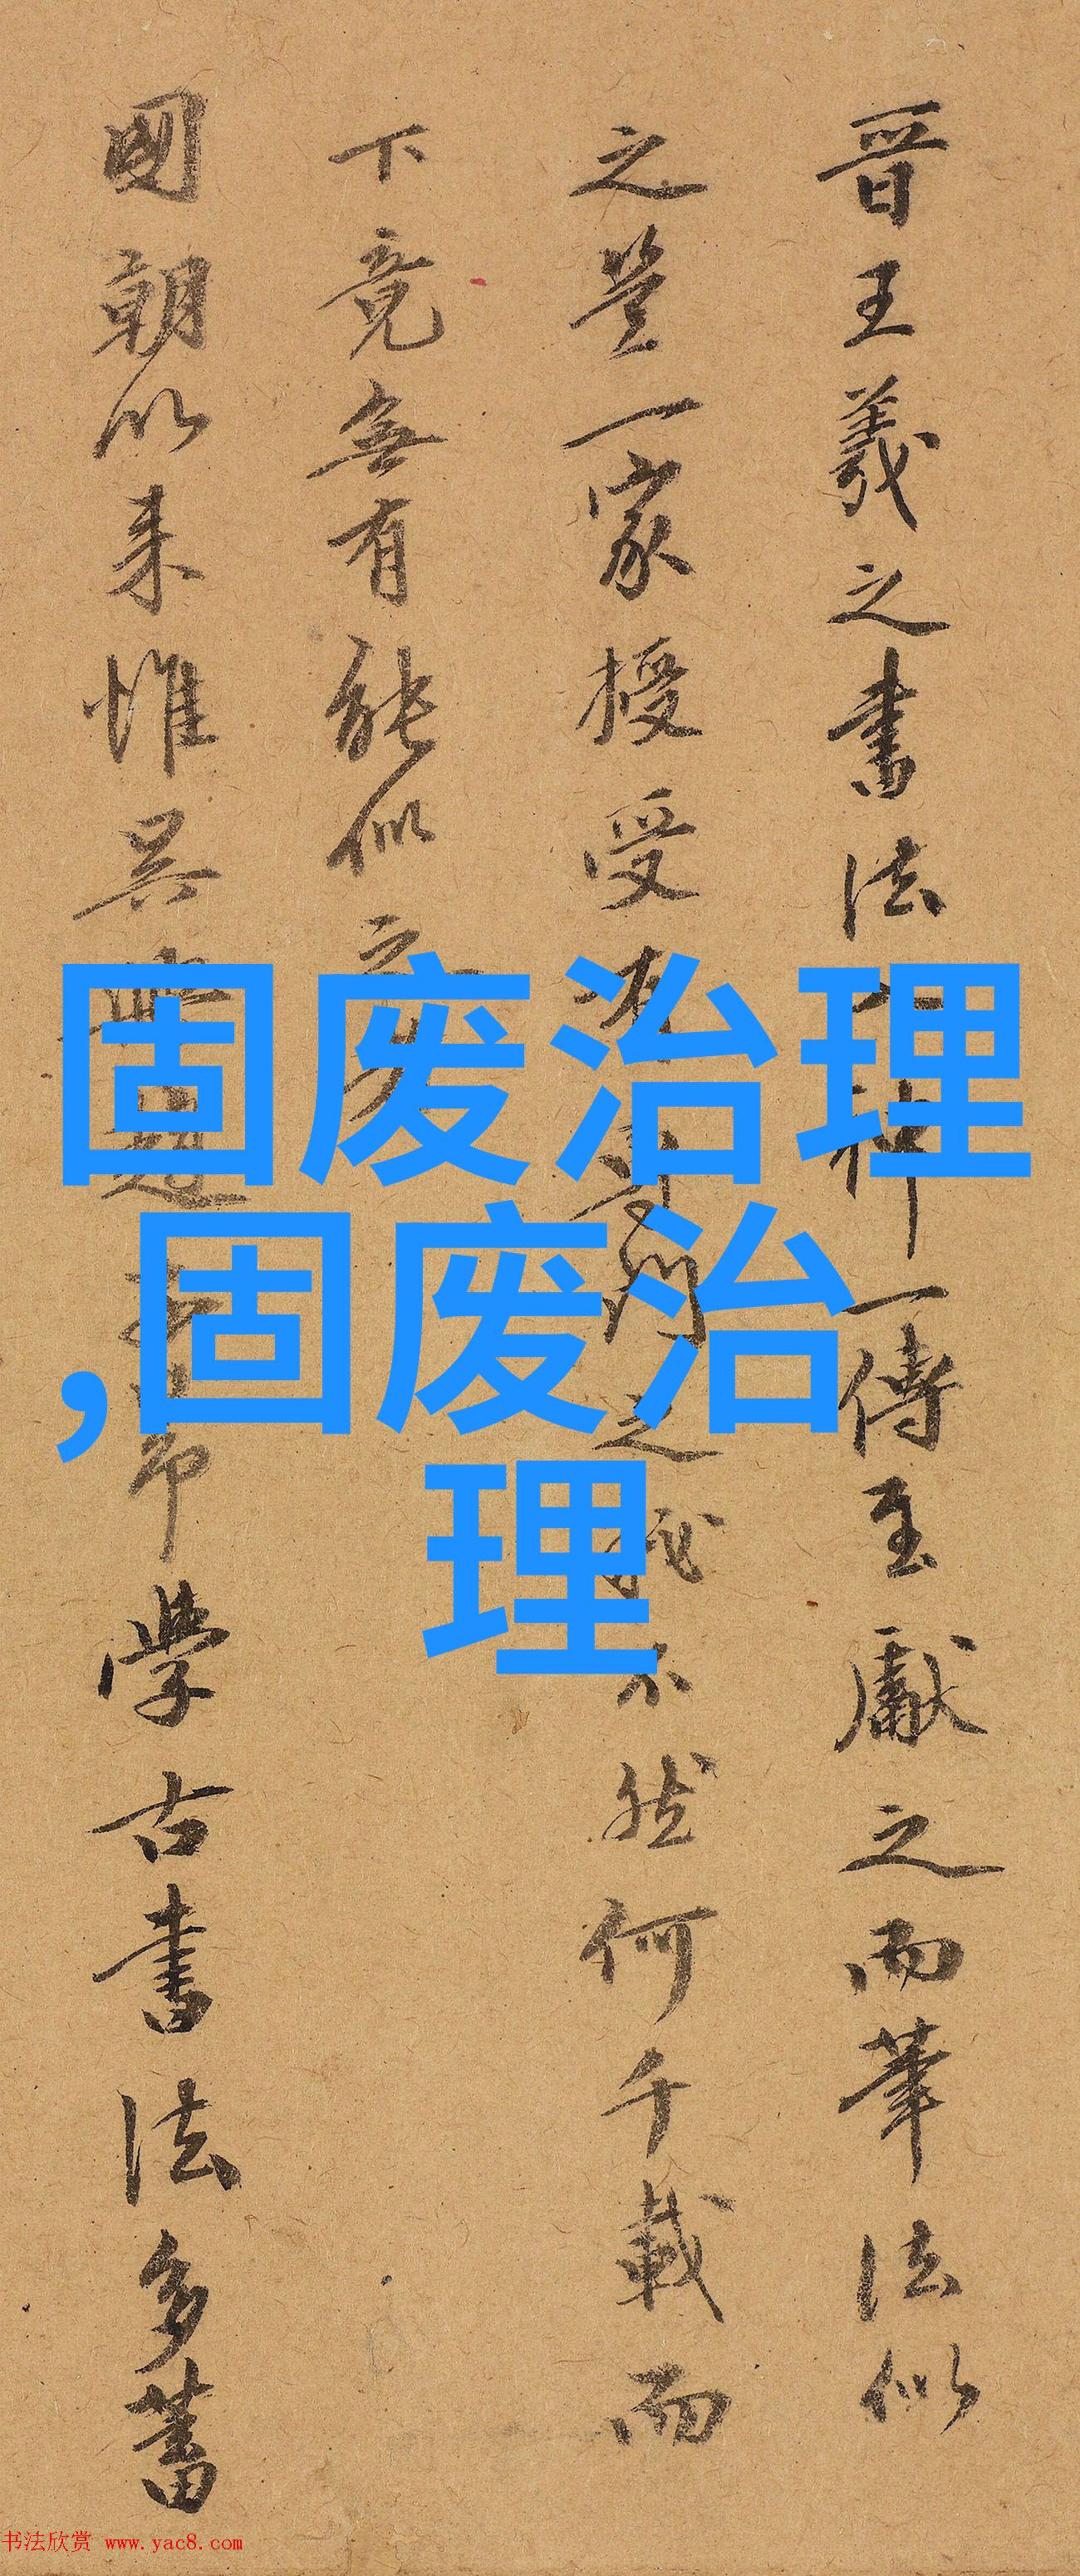 晋王羲之書法
神一傳至獻之而筆法似
之豈一家授受有專門之
不然何千載而
下竟無有能似之
國朝以来惟吴興趙
學古書法多蓄
固废治理
,固废治
理
书法欣赏 www.yac8.com